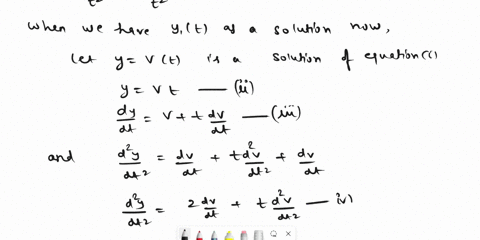 t² t²
when we have y₁(t) as a solution now,
let y = v(t) is a solution of equation(i)
y = vt — (ii)
dy/dt = v + t dv/dt — (iii)
and d²y/dt² = dv/dt + t d²v/dt² + dv/dt
d²y/dt² = 2 dv/dt + t d²v/dt² — iv)